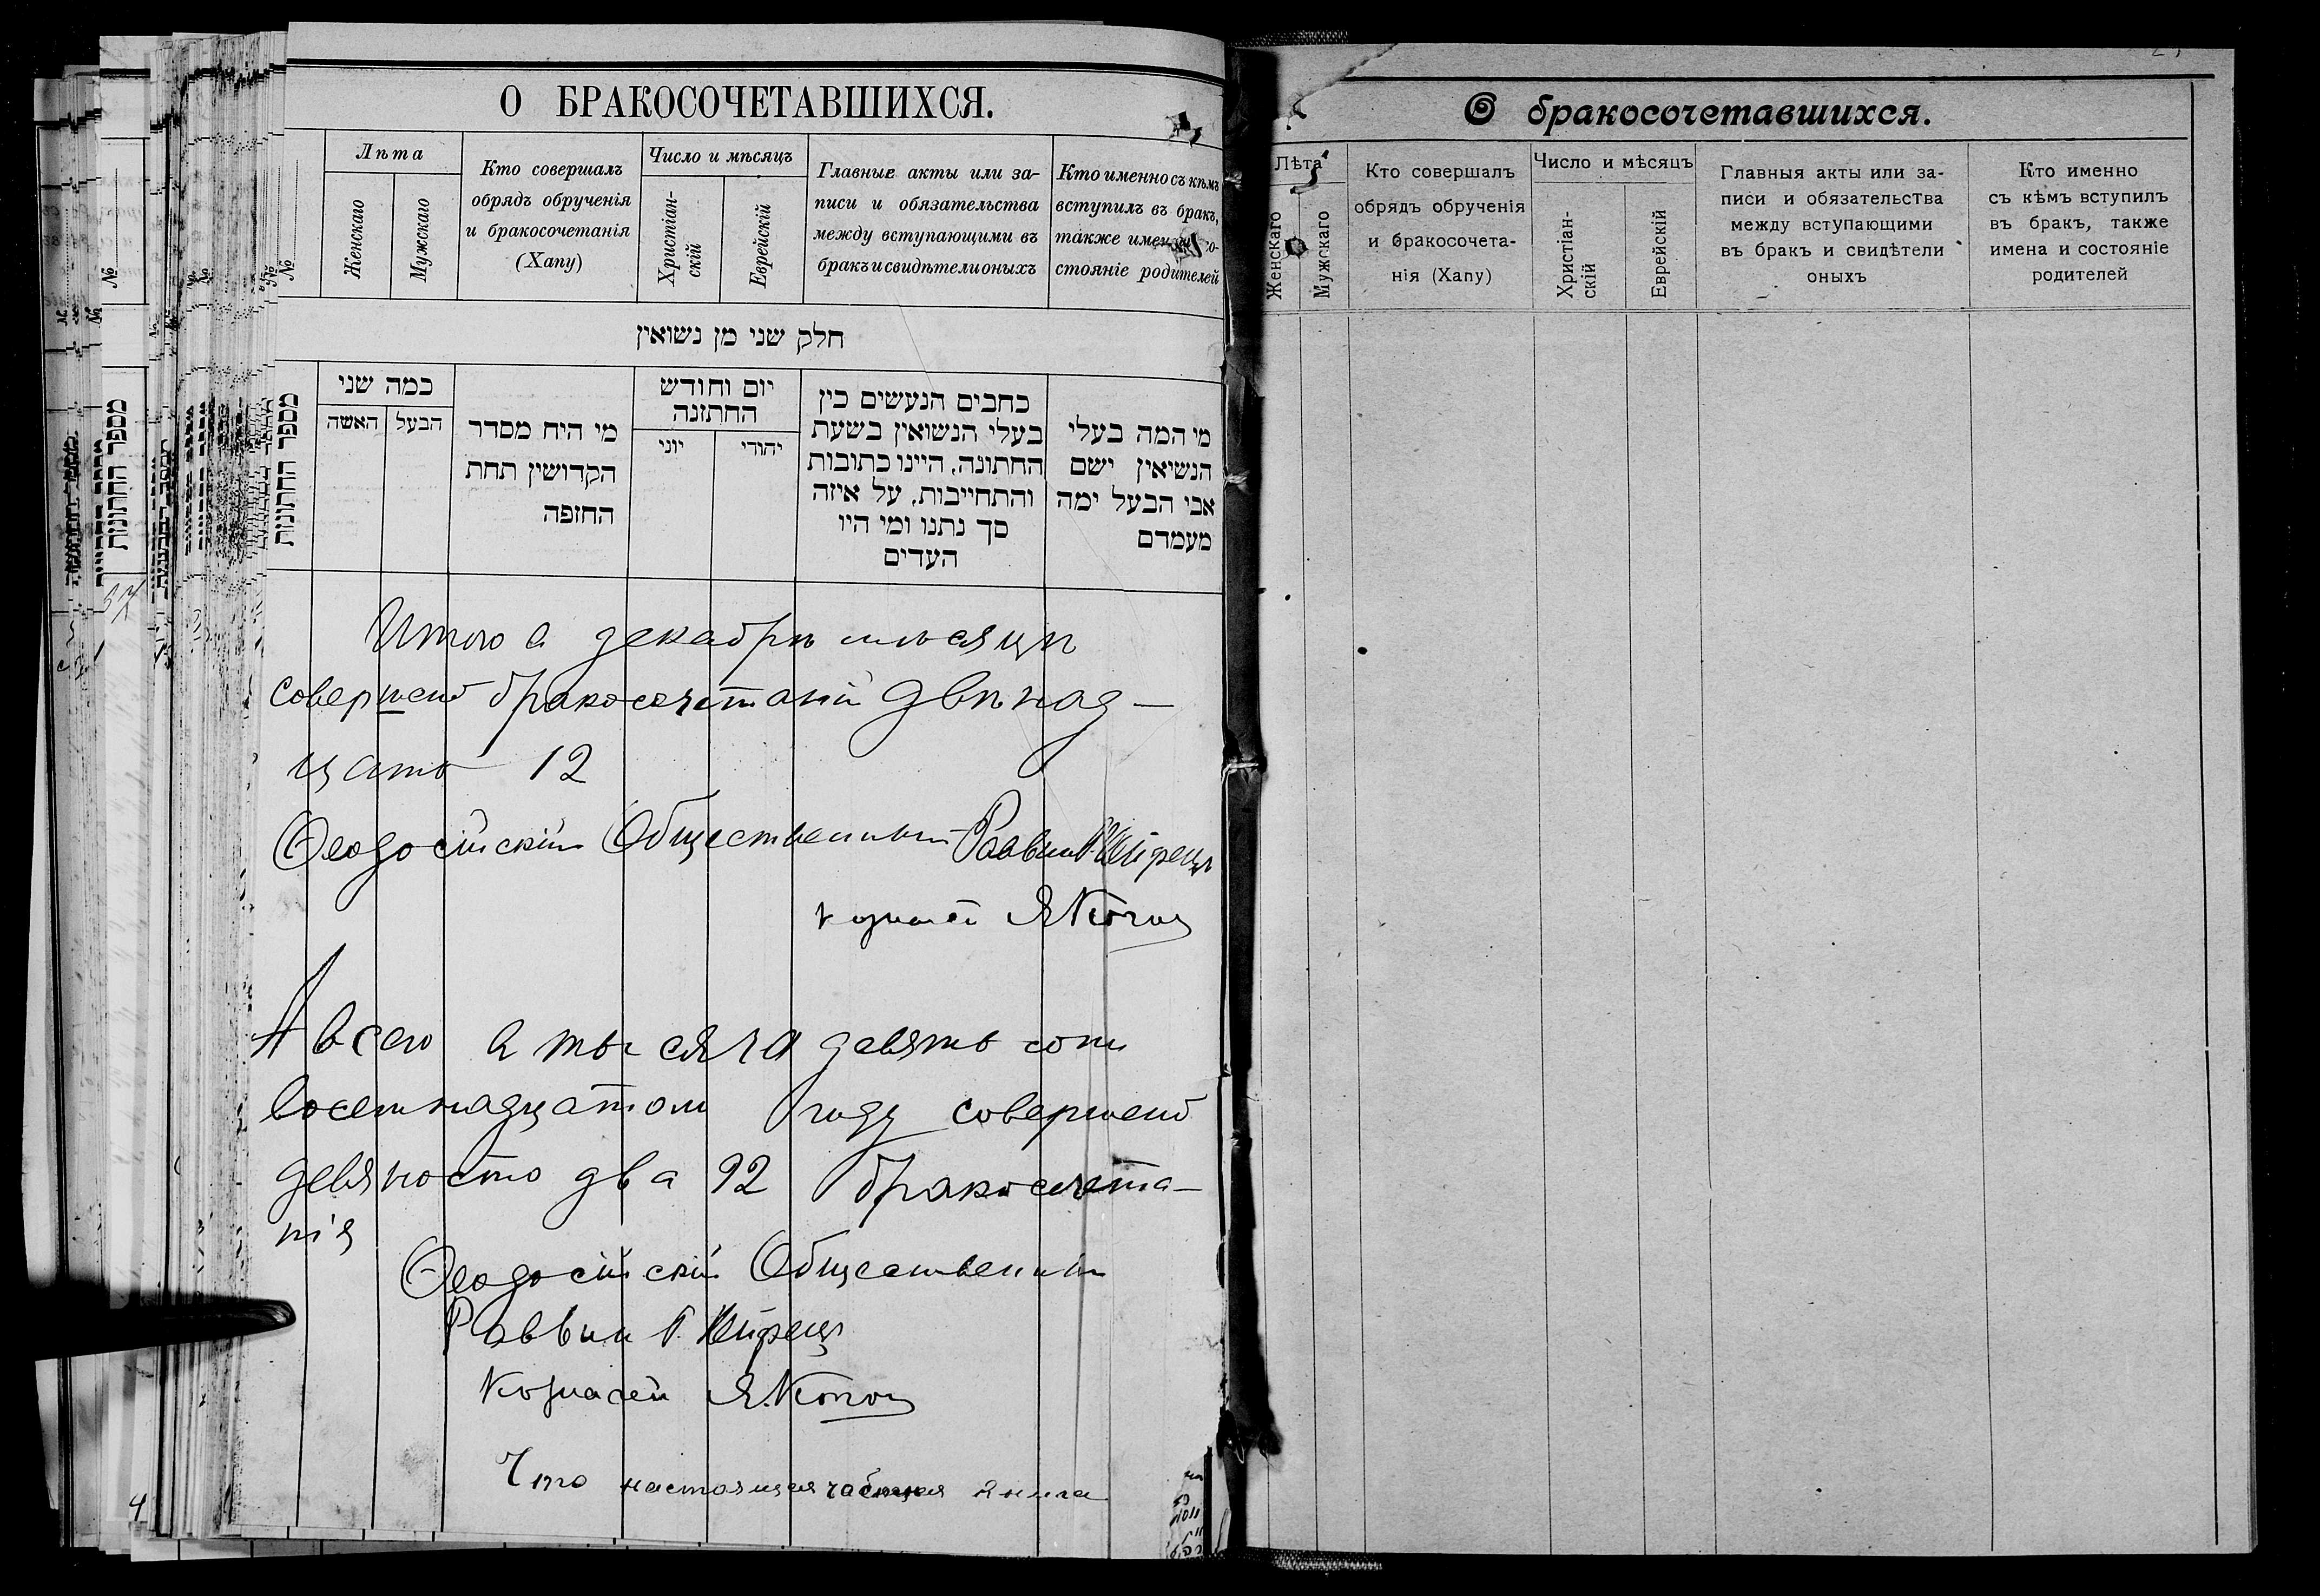 О БРАКОСОЧЕТАВШИХСЯ.
№
Лѣта
Женскаго
Мужскаго
Кто совершалъ
обрядъ обрученія
и бракосочетанія
(Хапу)
Число и мѣсяцъ
Христіан-
скій
Еврейскій
Главные акты или за-
писи и обязательства
между вступающими въ
бракъ и свидѣтели оныхъ
Кто именно съ кѣмъ
вступилъ въ бракъ,
также имена
стояніе родителей
חלק שני מן נשואין
מספר החתונות
כמה שני
האשה
הבעל
מי היח מסדר
הקדושין תחת
החופה
יום וחודש
החתונה
יוני
יהודי
כתבים הנעשים בין
בעלי הנשואין בשעת
החתונה, היינו כתובות
והתחייבות, על איזה
סך נתנו ומי היו
העדים
מי המה בעלי
הנשיאין ישם
אבי הבעל ימה
מעמדם
Итого в декабрѣ мѣсяцѣ
совершено бракосочетаній двѣнад-
цать 12
Ѳеодосійскій Общественный Раввин
казначей
А всего в тысяча девять сот
восемнадцатом году совершено
девяносто два 92 бракосочета-
нія
Ѳеодосійскій Общественный
Раввин
Казначей
Что настоящая книга
О бракосочетавшихся.
Лѣта
Женскаго
Мужскаго
Кто совершалъ
обрядъ обрученія
и бракосочета-
нія (Хапу)
Число и мѣсяцъ
Христіан-
скій
Еврейскій
Главныя акты или за-
писи и обязательства
между вступающими
въ бракъ и свидѣтели
оныхъ
Кто именно
съ кѣмъ вступилъ
въ бракъ, также
имена и состояніе
родителей